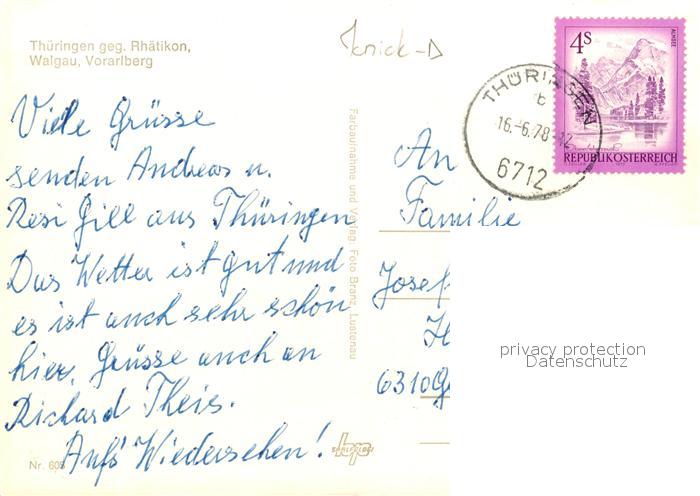 Thüringen geg. Rhätikon,
Walgau, Vorarlberg
knick-D
4S
ALMSEE
REPUBLIK ÖSTERREICH
THÜRINGEN
b
16.-6.78-12
6712
Viele Grüsse
senden Andreas u.
Resi Gill aus Thüringen
Das Wetter ist gut und
es ist auch sehr schön
hier, Grüsse auch an
Richard Theis.
Auf's Wiedersehen!
Nr. 605
Farbaufnahme und Verlag: Foto Branz, Lustenau
An
Familie
Josef
H
6310 G
privacy protection
Datenschutz